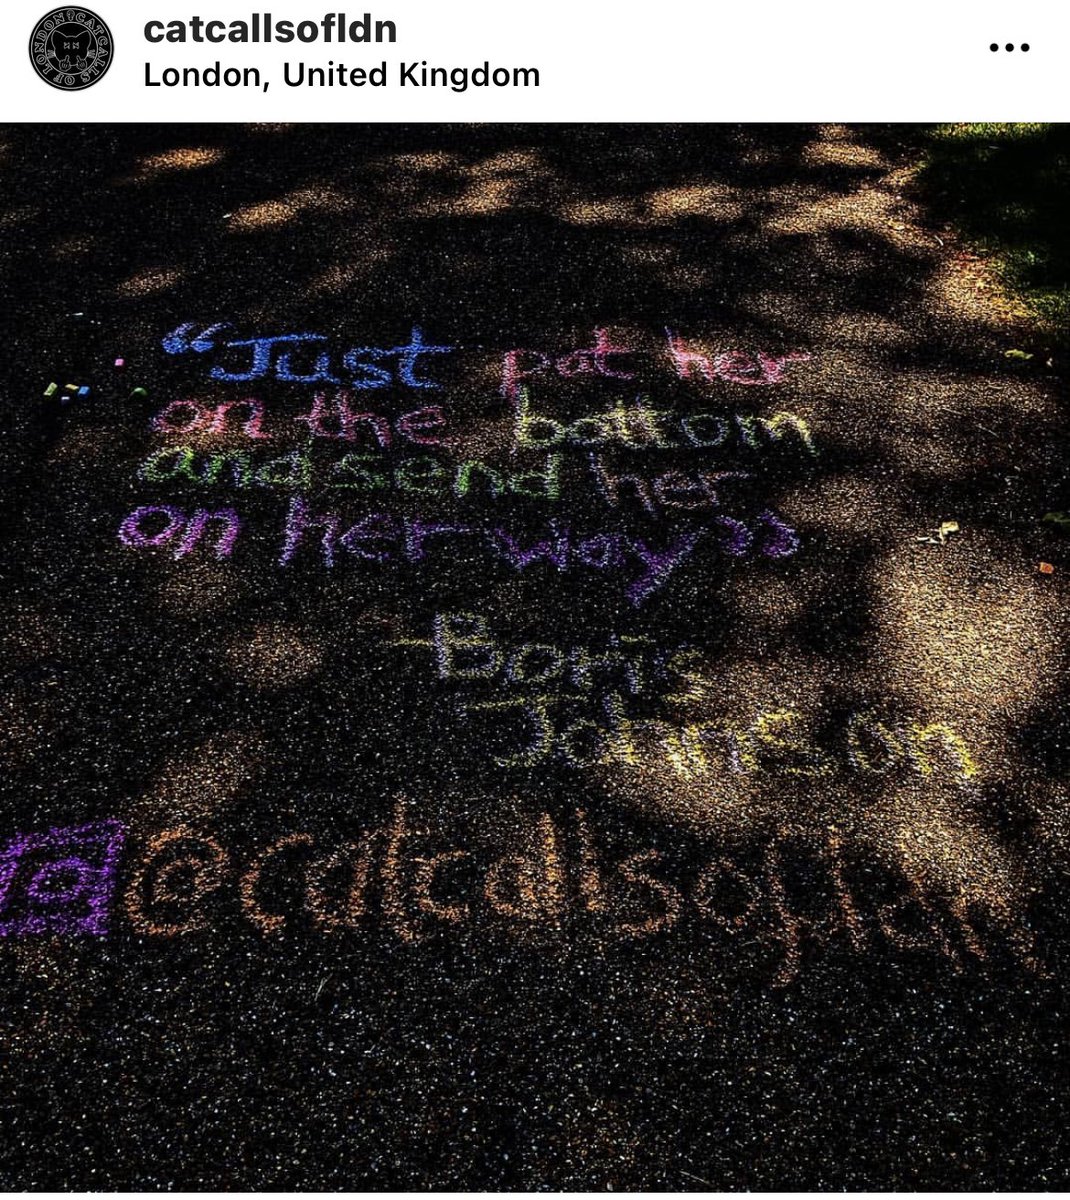 catcallsofldn
London, United Kingdom
“Just pat her
on the bottom
and send her
on her way”
- Boris
Johnson
@catcallsofldn